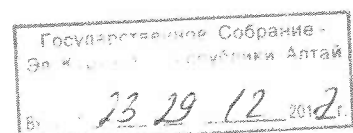 Государственное Собрание -
Эл Республики Алтай
23 29 12 2012 г.